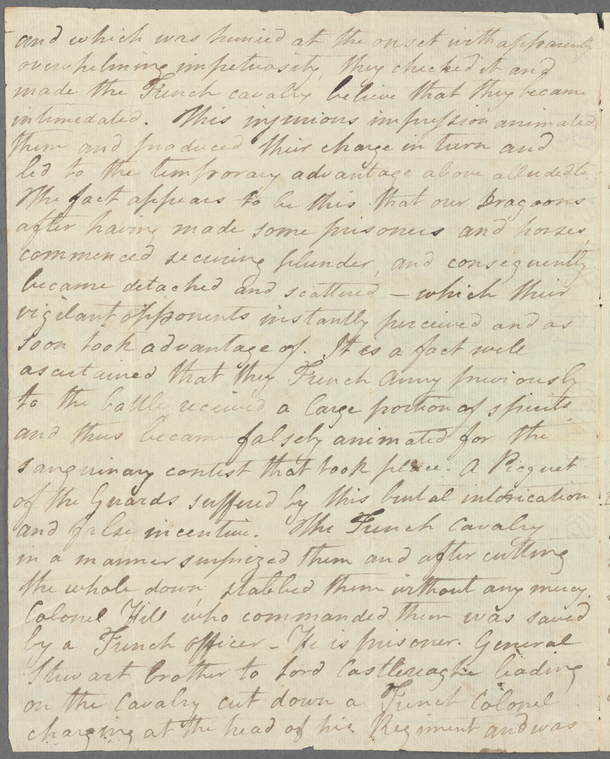 and which was hurried at the onset with apparently
overwhelming impetuosity, they checked it and
made the French cavalry believe that they became
intimedated. This injurious impression animated
them and produced their charge in turn and
led to the temporary advantage above alluded to
The fact appears to be this that our Dragoons
after having made some prisoners and horses,
commenced securing plunder, and consequently
became detached and scattered – which their
vigilant opponents instantly perceived and as
soon took advantage of. It is a fact well
ascertained that they French Army previously
to the battle received a large portion of spirits
and thus became falsely animated for the
sanguinary contest that took place. A Picquet
of the Guards suffered by this brutal intoxication
and false incentive. The French Cavalry
in a manner surprized them and after cutting
the whole down stabbed them without any mercy.
Colonel Hill who commanded them was saved
by a French officer – He is prisoner. General
Stewart brother to Lord Castlereaghe leading
on the Cavalry cut down a French Colonel
charging at the head of his Regiment and was